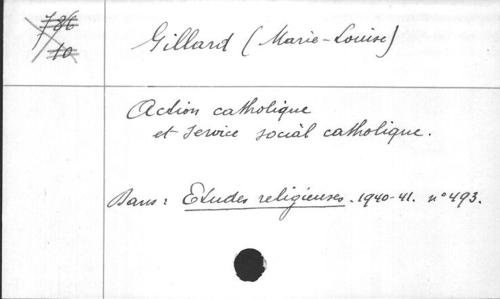 786
10
Gillard (Marie-Louise)
Action catholique
et service social catholique.
Dans: Etudes religieuses. 1940-41. n° 493.